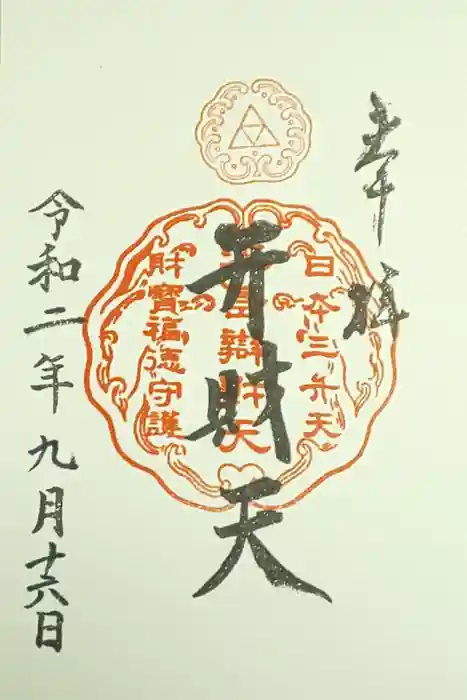 奉拝
日本三弁天
江島辯財天
財寶福徳守護
弁財天
令和二年九月十六日